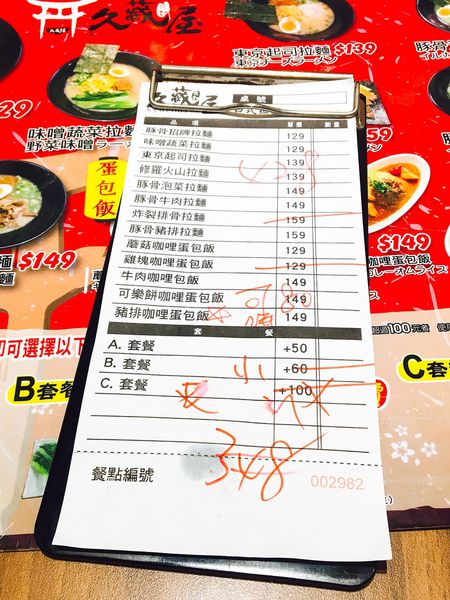 久藏屋
東京起司拉麵 $139
東京チーズラーメン
豚骨
味噌蔬菜拉麵
野菜味噌ラー
蛋包飯
$149
久藏屋 桌號
品項 單價 數量
豚骨招牌拉麵 129
味噌蔬菜拉麵 129
東京起司拉麵 139
修羅火山拉麵 139
豚骨泡菜拉麵 149
豚骨牛肉拉麵 149
炸裂排骨拉麵 159
豚骨豬排拉麵 159
蘑菇咖哩蛋包飯 129
雞塊咖哩蛋包飯 129
牛肉咖哩蛋包飯 149
可樂餅咖哩蛋包飯 149
豬排咖哩蛋包飯 149
套餐
A. 套餐 +50
B. 套餐 +60
C. 套餐 +100
348
餐點編號 002982
$159
$149
咖哩蛋包飯
カレーオムライス
100元
即可選擇以下
B套餐
C套餐